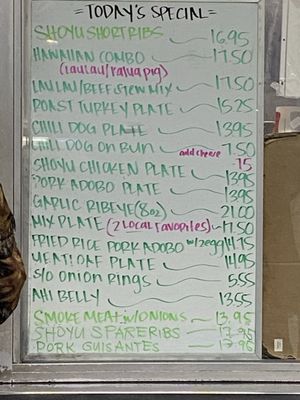 = TODAY'S SPECIAL =
SHOYU SHORTRIBS 16.95
HAWAIIAN COMBO 17.50
(LAULAU/KALUA PIG)
LAULAU/BEEF STEW MIX 17.50
ROAST TURKEY PLATE 15.25
CHILI DOG PLATE 13.95
CHILI DOG ON BUN 7.50
add cheese .75
SHOYU CHICKEN PLATE 13.95
PORK ADOBO PLATE 13.95
GARLIC RIBEYE (8oz) 21.00
MIX PLATE (2 LOCAL FAVORITES) 17.50
FRIED RICE PORK ADOBO w/2egg 14.75
MEATLOAF PLATE 14.95
S/O ONION RINGS 5.55
AHI BELLY 13.55
SMOKE MEAT W/ONIONS 13.95
SHOYU SPARERIBS 13.95
PORK GUISANTES 13.95